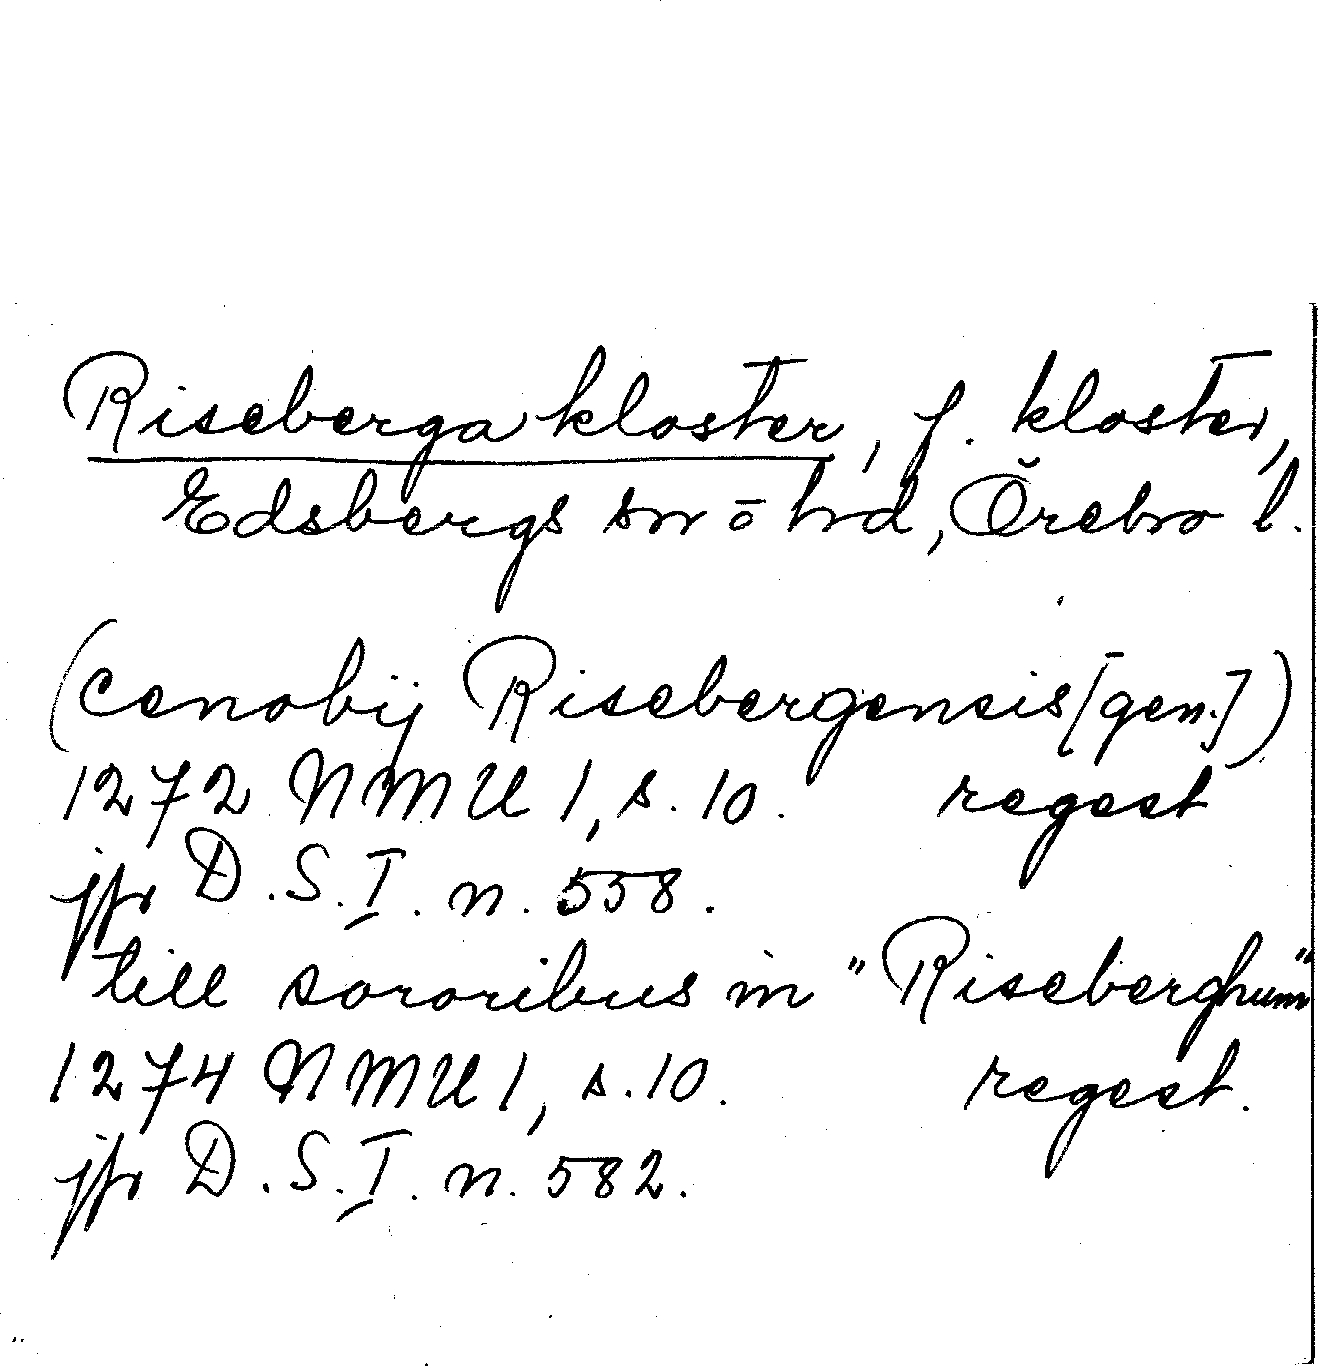 Riseberga kloster, f. kloster,
Edsbergs sn o hd, Örebro l.
(cenobij Risebergensis [gen.])
1272 NMU 1, s. 10. regest
jfr D.S.I. n. 558.
till sororibus in "Riseberghum"
1274 NMU 1, s. 10. regest.
jfr D.S.I. n. 582.